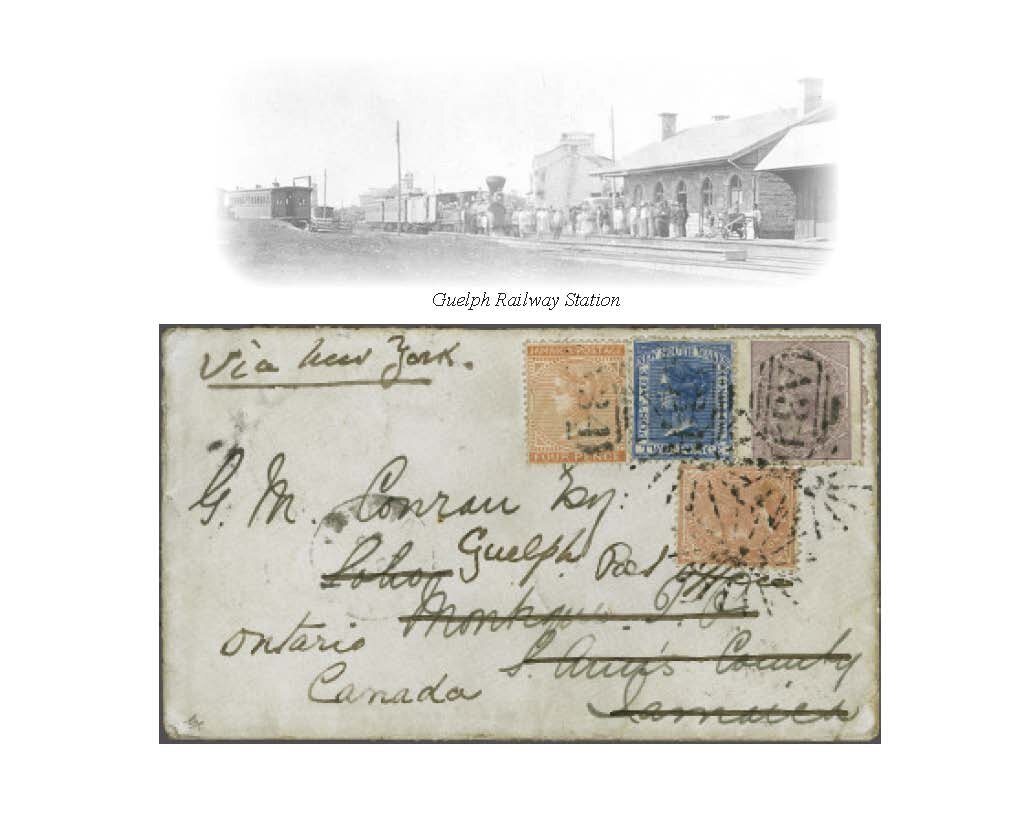 Guelph Railway Station
Via New York.
JAMAICA POSTAGE
FOUR PENCE
NEW SOUTH WALES
POSTAGE
TWO PENCE
G. M. Conran Esq.
Soho Guelph Post Office
P.O.
Ontario
St. Ann's County
Canada
Jamaica